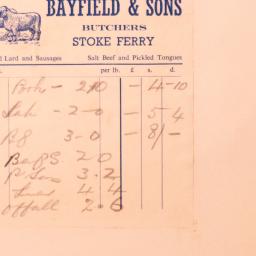 BAYFIELD & SONS
BUTCHERS
STOKE FERRY
d Lard and Sausages Salt Beef and Pickled Tongues
per lb. £ s. d.
Pork - 2/0 - 4-10
2-0 - 5 4
3-0 - 8/-
Beef S. 2 0
3.2
4 4
Offall 2.6